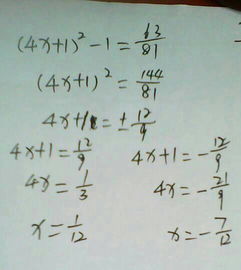 (4x+1)² - 1 = 63/81
(4x+1)² = 144/81
4x+1 = ± 12/9
4x+1 = 12/9    4x+1 = - 12/9
4x = 1/3    4x = - 21/9
x = 1/12    x = - 7/12